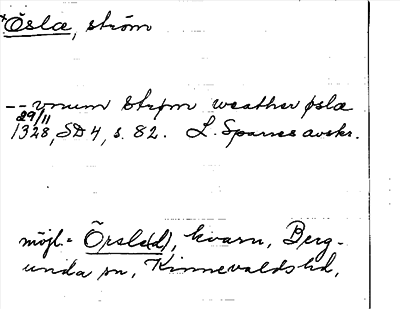 *Öslæ, ström
-- vnum strøm weather øslæ
29/11
1328, SD 4, s. 82. L. Sparres avskr.
möjl. = Örsle(d), kvarn, Berg-
unda sn, Kinnevalds hd.